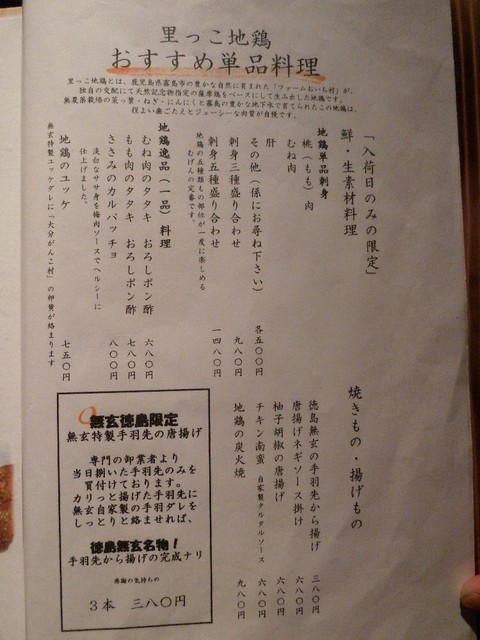 里っこ地鶏
おすすめ単品料理
里っこ地鶏とは、鹿児島県霧島市の豊かな自然に育まれた「ファームおいち村」が、
独自の交配にて天然記念物指定の薩摩鶏をベースにして生み出した地鶏です。
無農薬栽培の菜っ葉・ねぎ・にんにくと霧島の豊かな地下水で育てられたこの地鶏は、
程よい歯ごたえとジューシーな肉質が自慢です。
「入荷日のみの限定」
鮮・生素材料理
地鶏単品刺身
桃(もも)肉
むね肉
肝
その他(係にお尋ね下さい) 各五〇〇円
刺身三種盛り合わせ 九八〇円
刺身五種盛り合わせ 一四八〇円
地鶏の五種類もの部位が一度に楽しめる
むげんの定番です。
地鶏逸品(一品)料理
むね肉のタタキ おろしポン酢 六八〇円
もも肉のタタキ おろしポン酢 七八〇円
ささみのカルパッチョ 八〇〇円
淡白なササ身を梅肉ソースでヘルシーに
仕上げました。
地鶏のユッケ 七五〇円
無玄特製ユッケダレに「大分がんこ村」の卵黄が絡まります
焼きもの・揚げもの
徳島無玄の手羽先から揚げ 三八〇円
唐揚げネギソース掛け 六八〇円
柚子胡椒の唐揚げ 六八〇円
チキン南蛮 自家製タルタルソース 六八〇円
地鶏の炭火焼 九八〇円
無玄徳島限定
無玄特製手羽先の唐揚げ
専門の卸業者より
当日捌いた手羽先のみを
買付けております。
カリっと揚げた手羽先に
無玄自家製の手羽ダレを
しっとりと絡ませれば、
徳島無玄名物!
手羽先から揚げの完成ナリ
感謝の気持ちの
3本 三八〇円